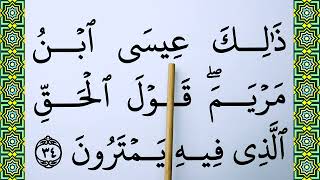 ذَٰلِكَ عِيسَى ٱبْنُ
مَرْيَمَ ۖ قَوْلَ ٱلْحَقِّ
ٱلَّذِى فِيهِ يَمْتَرُونَ ٣٤